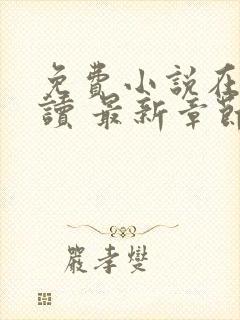 免費小說在
讀 最新章節
嚴孝燮